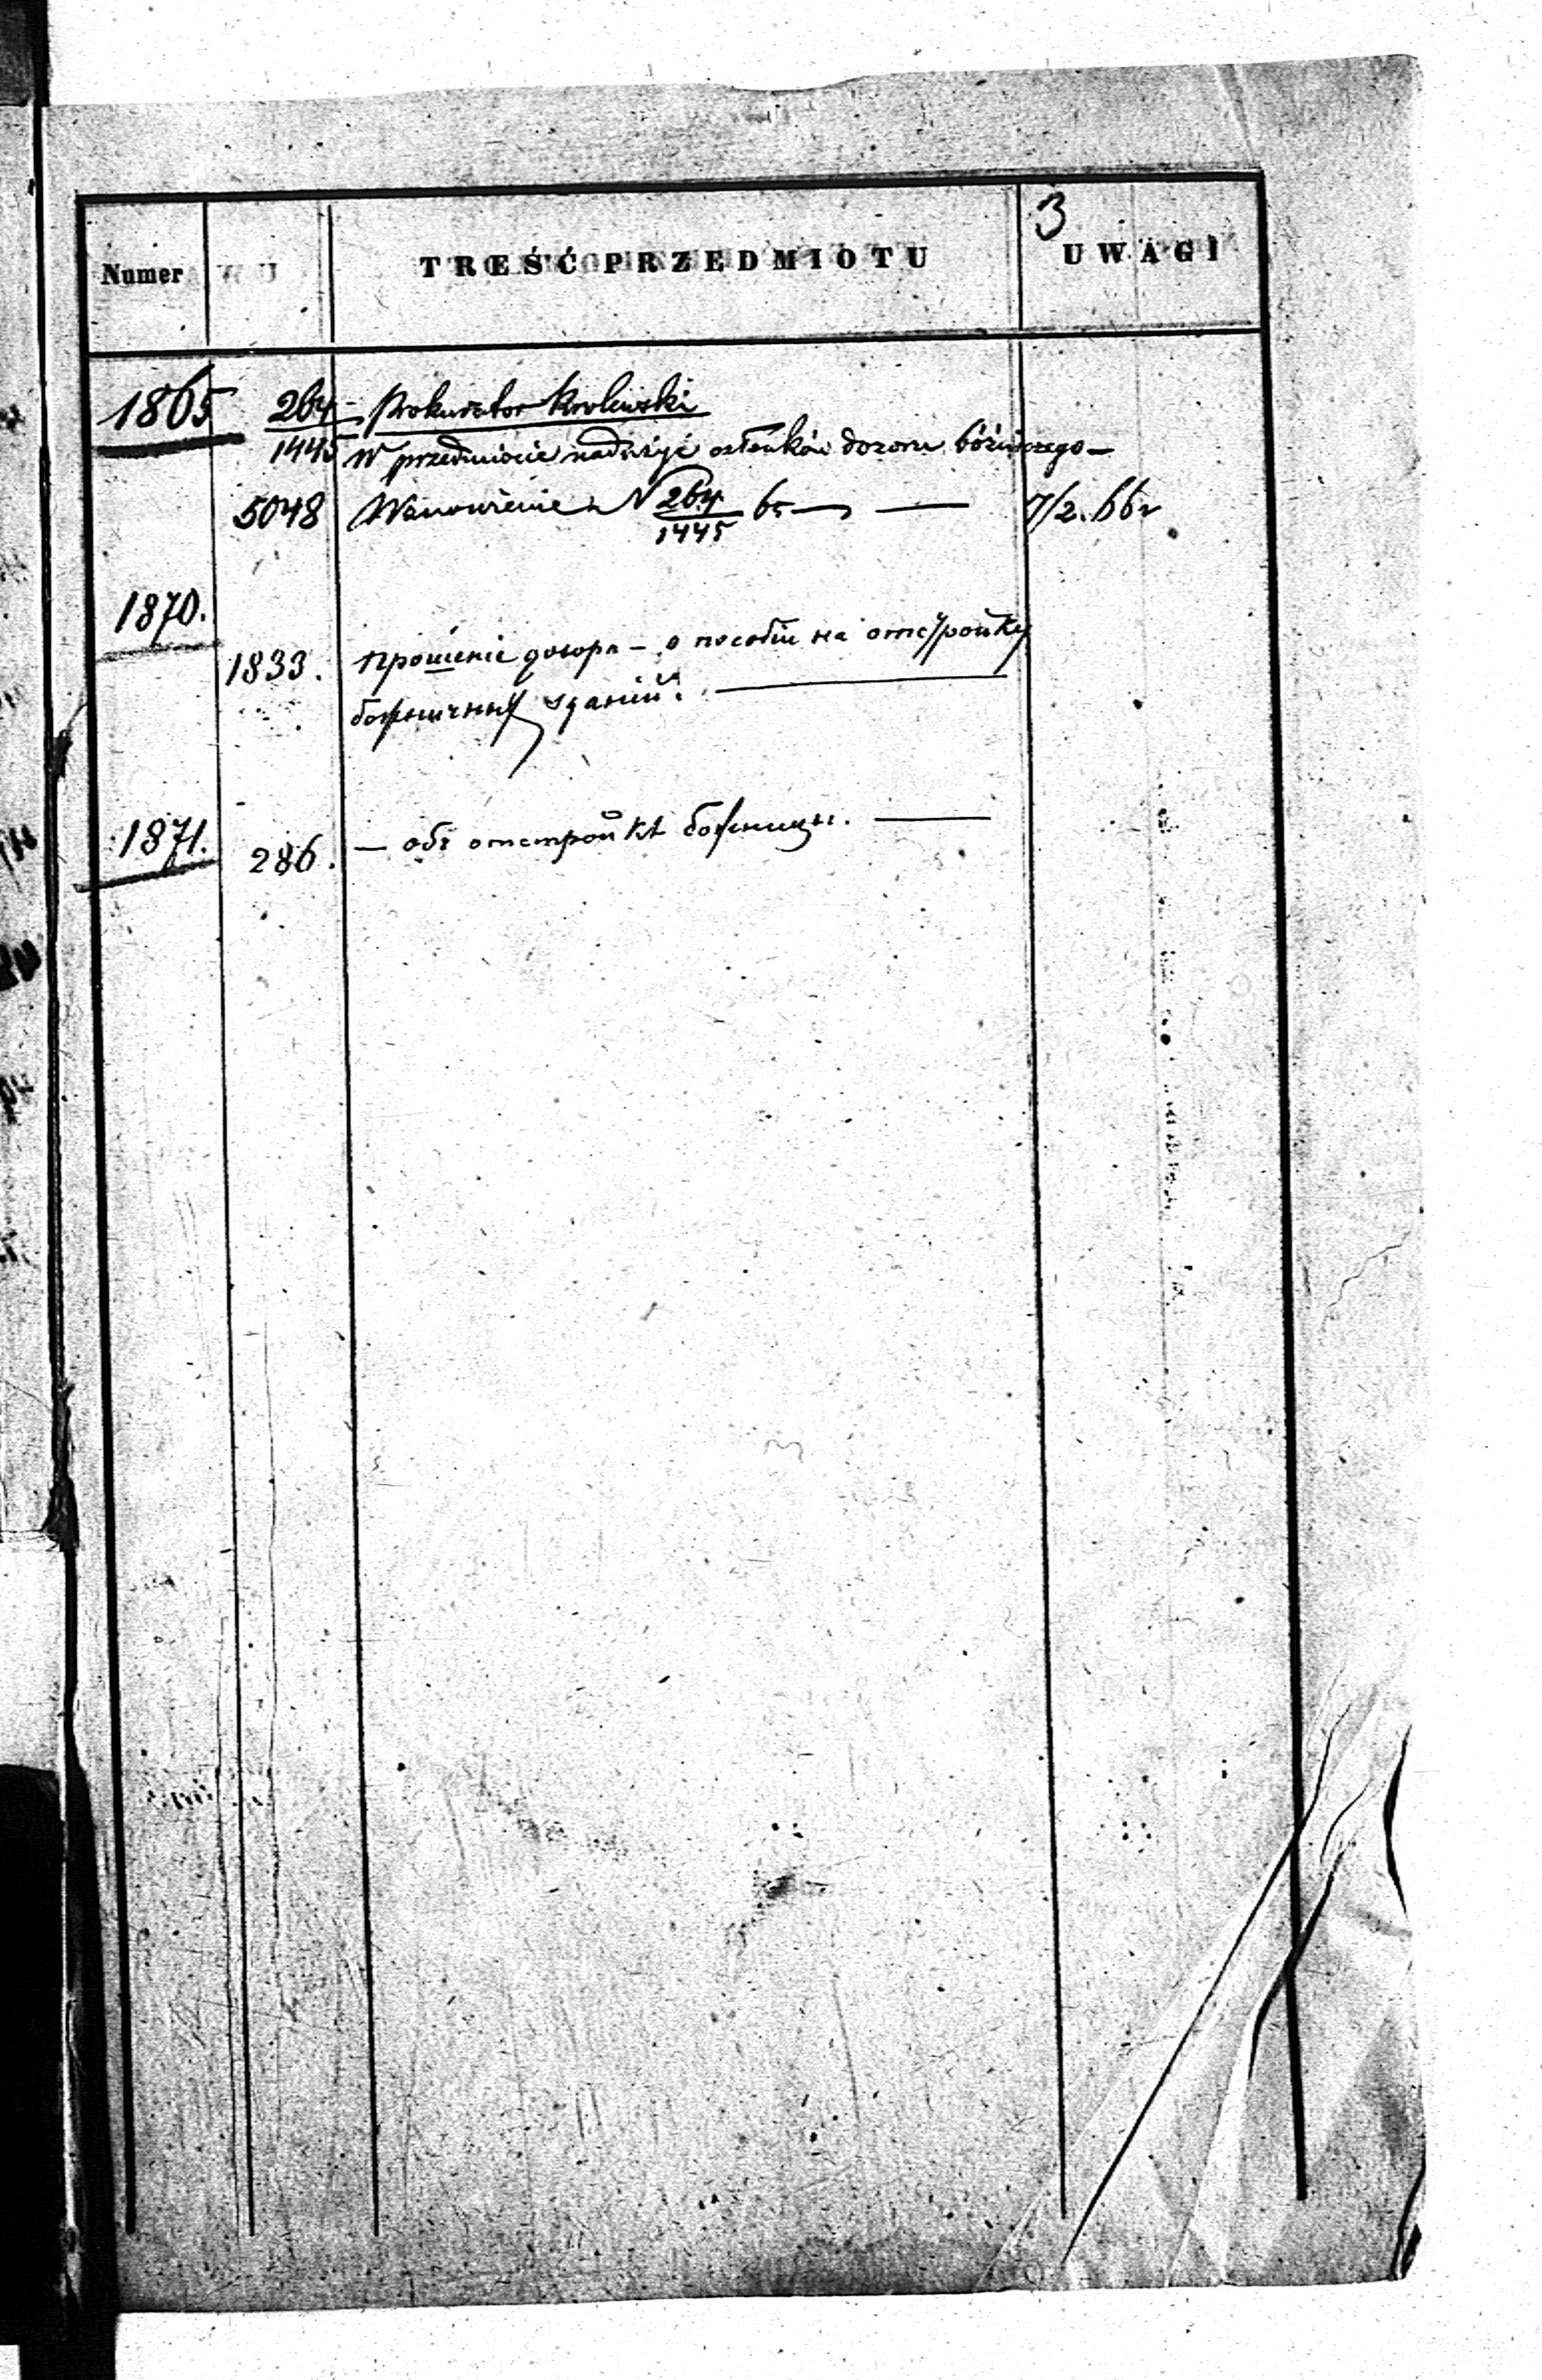 3
Numer TREŚĆ PRZEDMIOTU UWAGI
1865 264 Prokurator Krolewski
1445 W przedmiocie nadużyć członków dozoru bóżniczego —
5048 Wznowienie N 264/1445 65 — — 7/2. 66 r
1870.
1833. Прошеніе дозора — о пособіи на отстройку
божничныхъ зданій. —
1871. 286. — объ отстройкѣ божницы. —